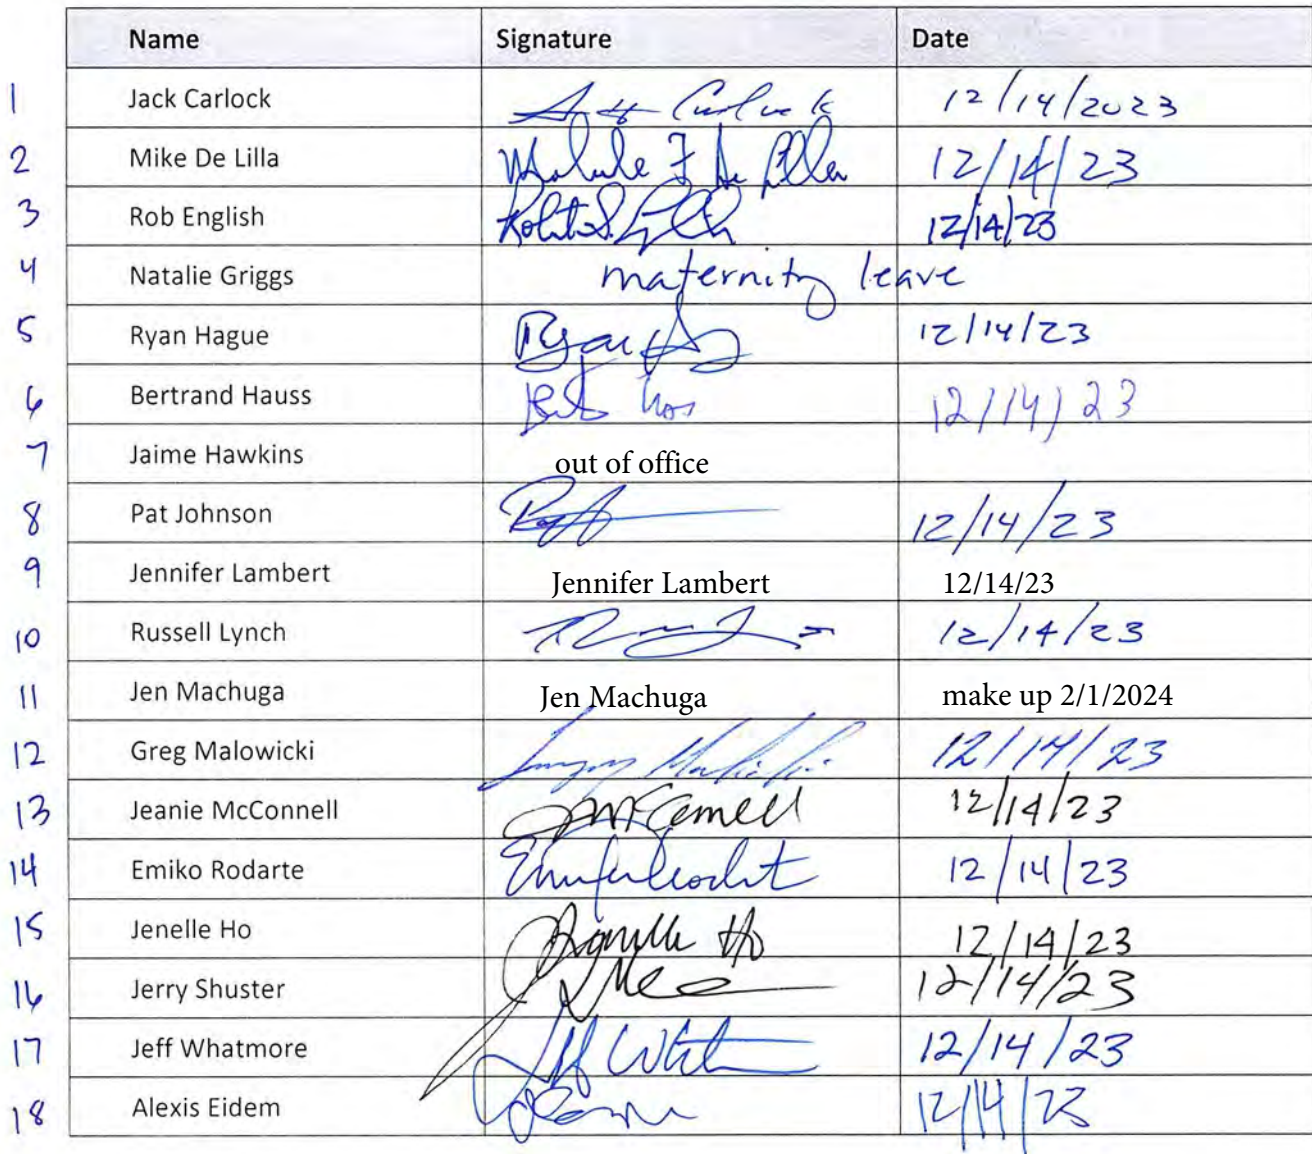 Name Signature Date
1 Jack Carlock 12/14/2023
2 Mike De Lilla 12/14/23
3 Rob English 12/14/23
4 Natalie Griggs maternity leave
5 Ryan Hague Ryan 12/14/23
6 Bertrand Hauss 12/14/23
7 Jaime Hawkins out of office
8 Pat Johnson 12/14/23
9 Jennifer Lambert Jennifer Lambert 12/14/23
10 Russell Lynch 12/14/23
11 Jen Machuga Jen Machuga make up 2/1/2024
12 Greg Malowicki 12/14/23
13 Jeanie McConnell 12/14/23
14 Emiko Rodarte 12/14/23
15 Jenelle Ho Jenelle Ho 12/14/23
16 Jerry Shuster 12/14/23
17 Jeff Whatmore 12/14/23
18 Alexis Eidem 12/14/23